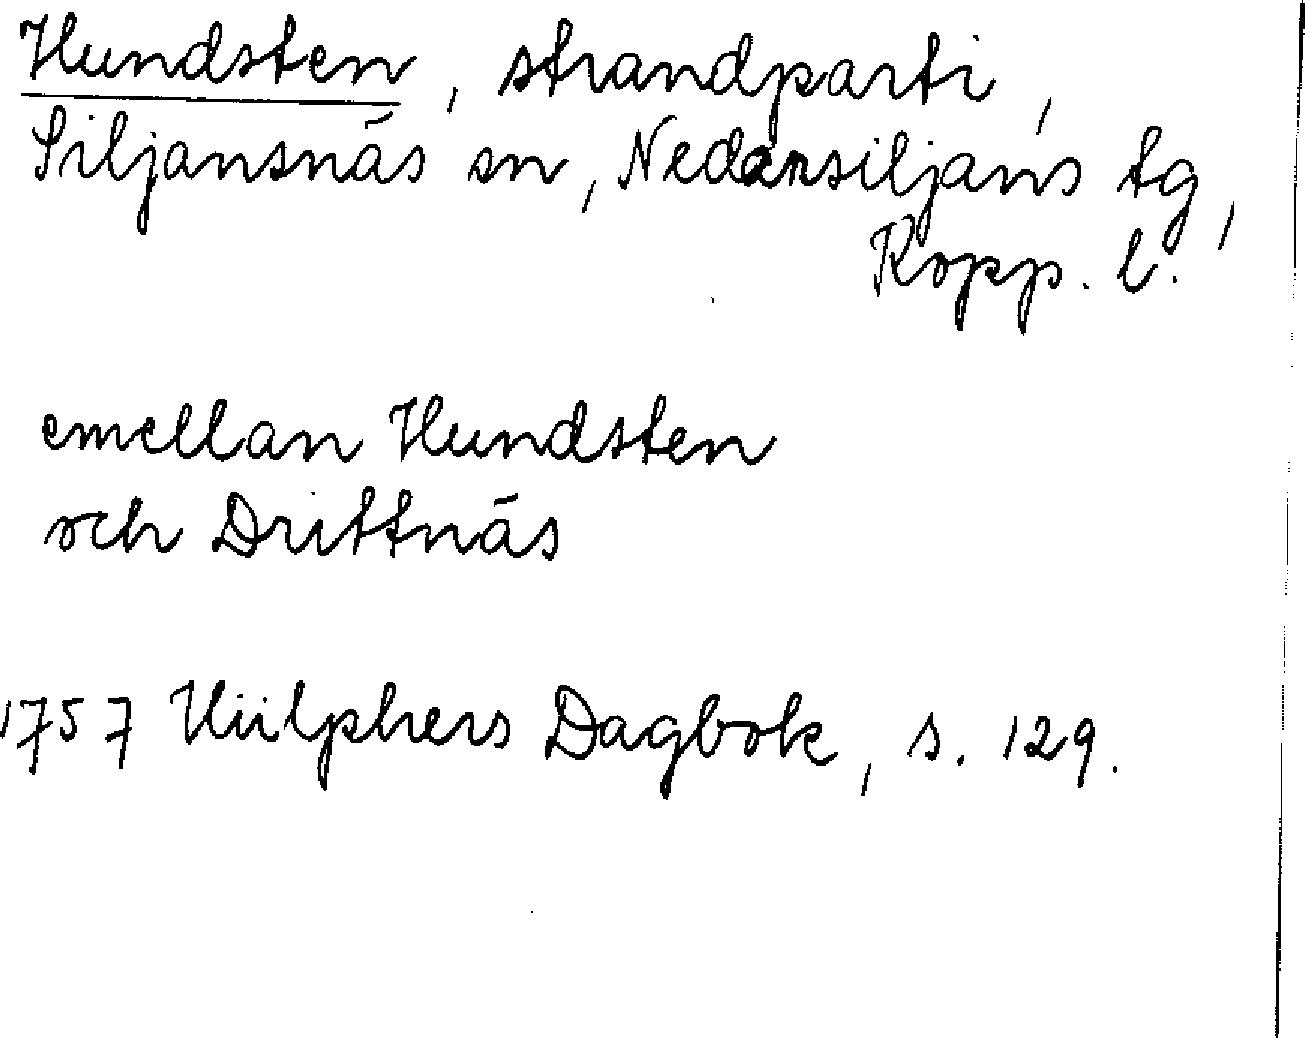 Hundsten, strandparti,
Siljansnäs sn, Nedansiljans tg,
Kopp. l.
emellan Hundsten
och Drittnäs
1757 Hülphers Dagbok, s. 129.